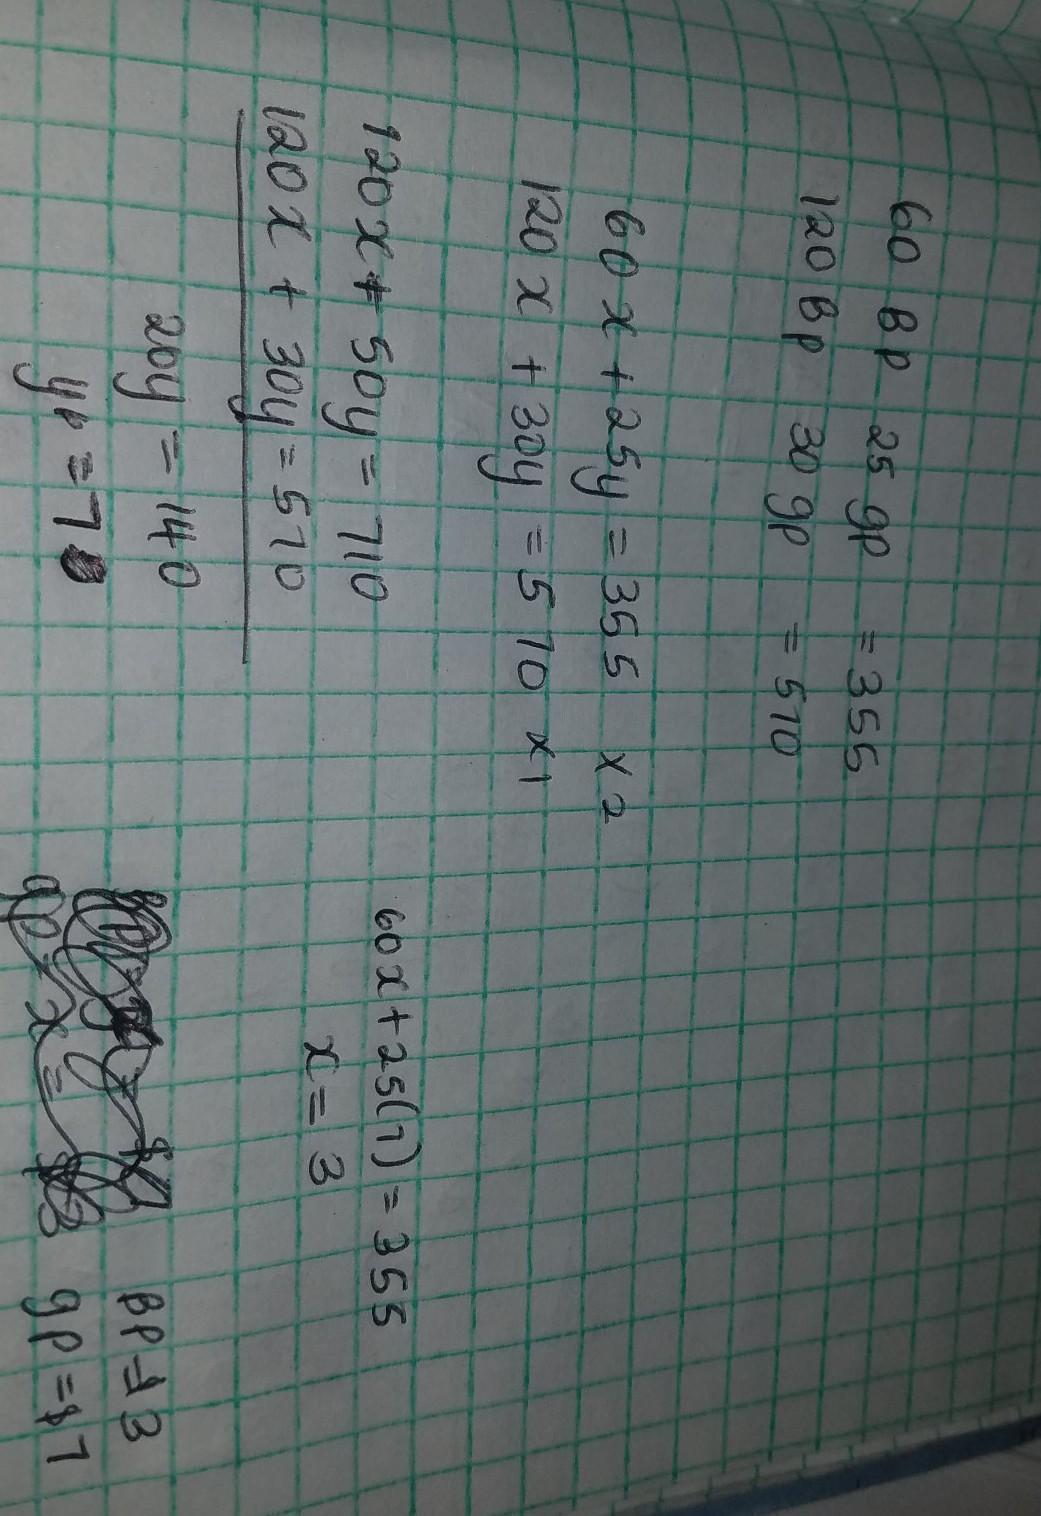 60 Bp 25 gp = 355
120 Bp 30 gp = 510
60 x + 25y = 355 x 2
120 x + 30y = 510 x 1
120 x + 50y = 710
120 x + 30y = 570
20y = 140
y = 7
60x + 25(7) = 355
x = 3
BP = $3
gP = $7